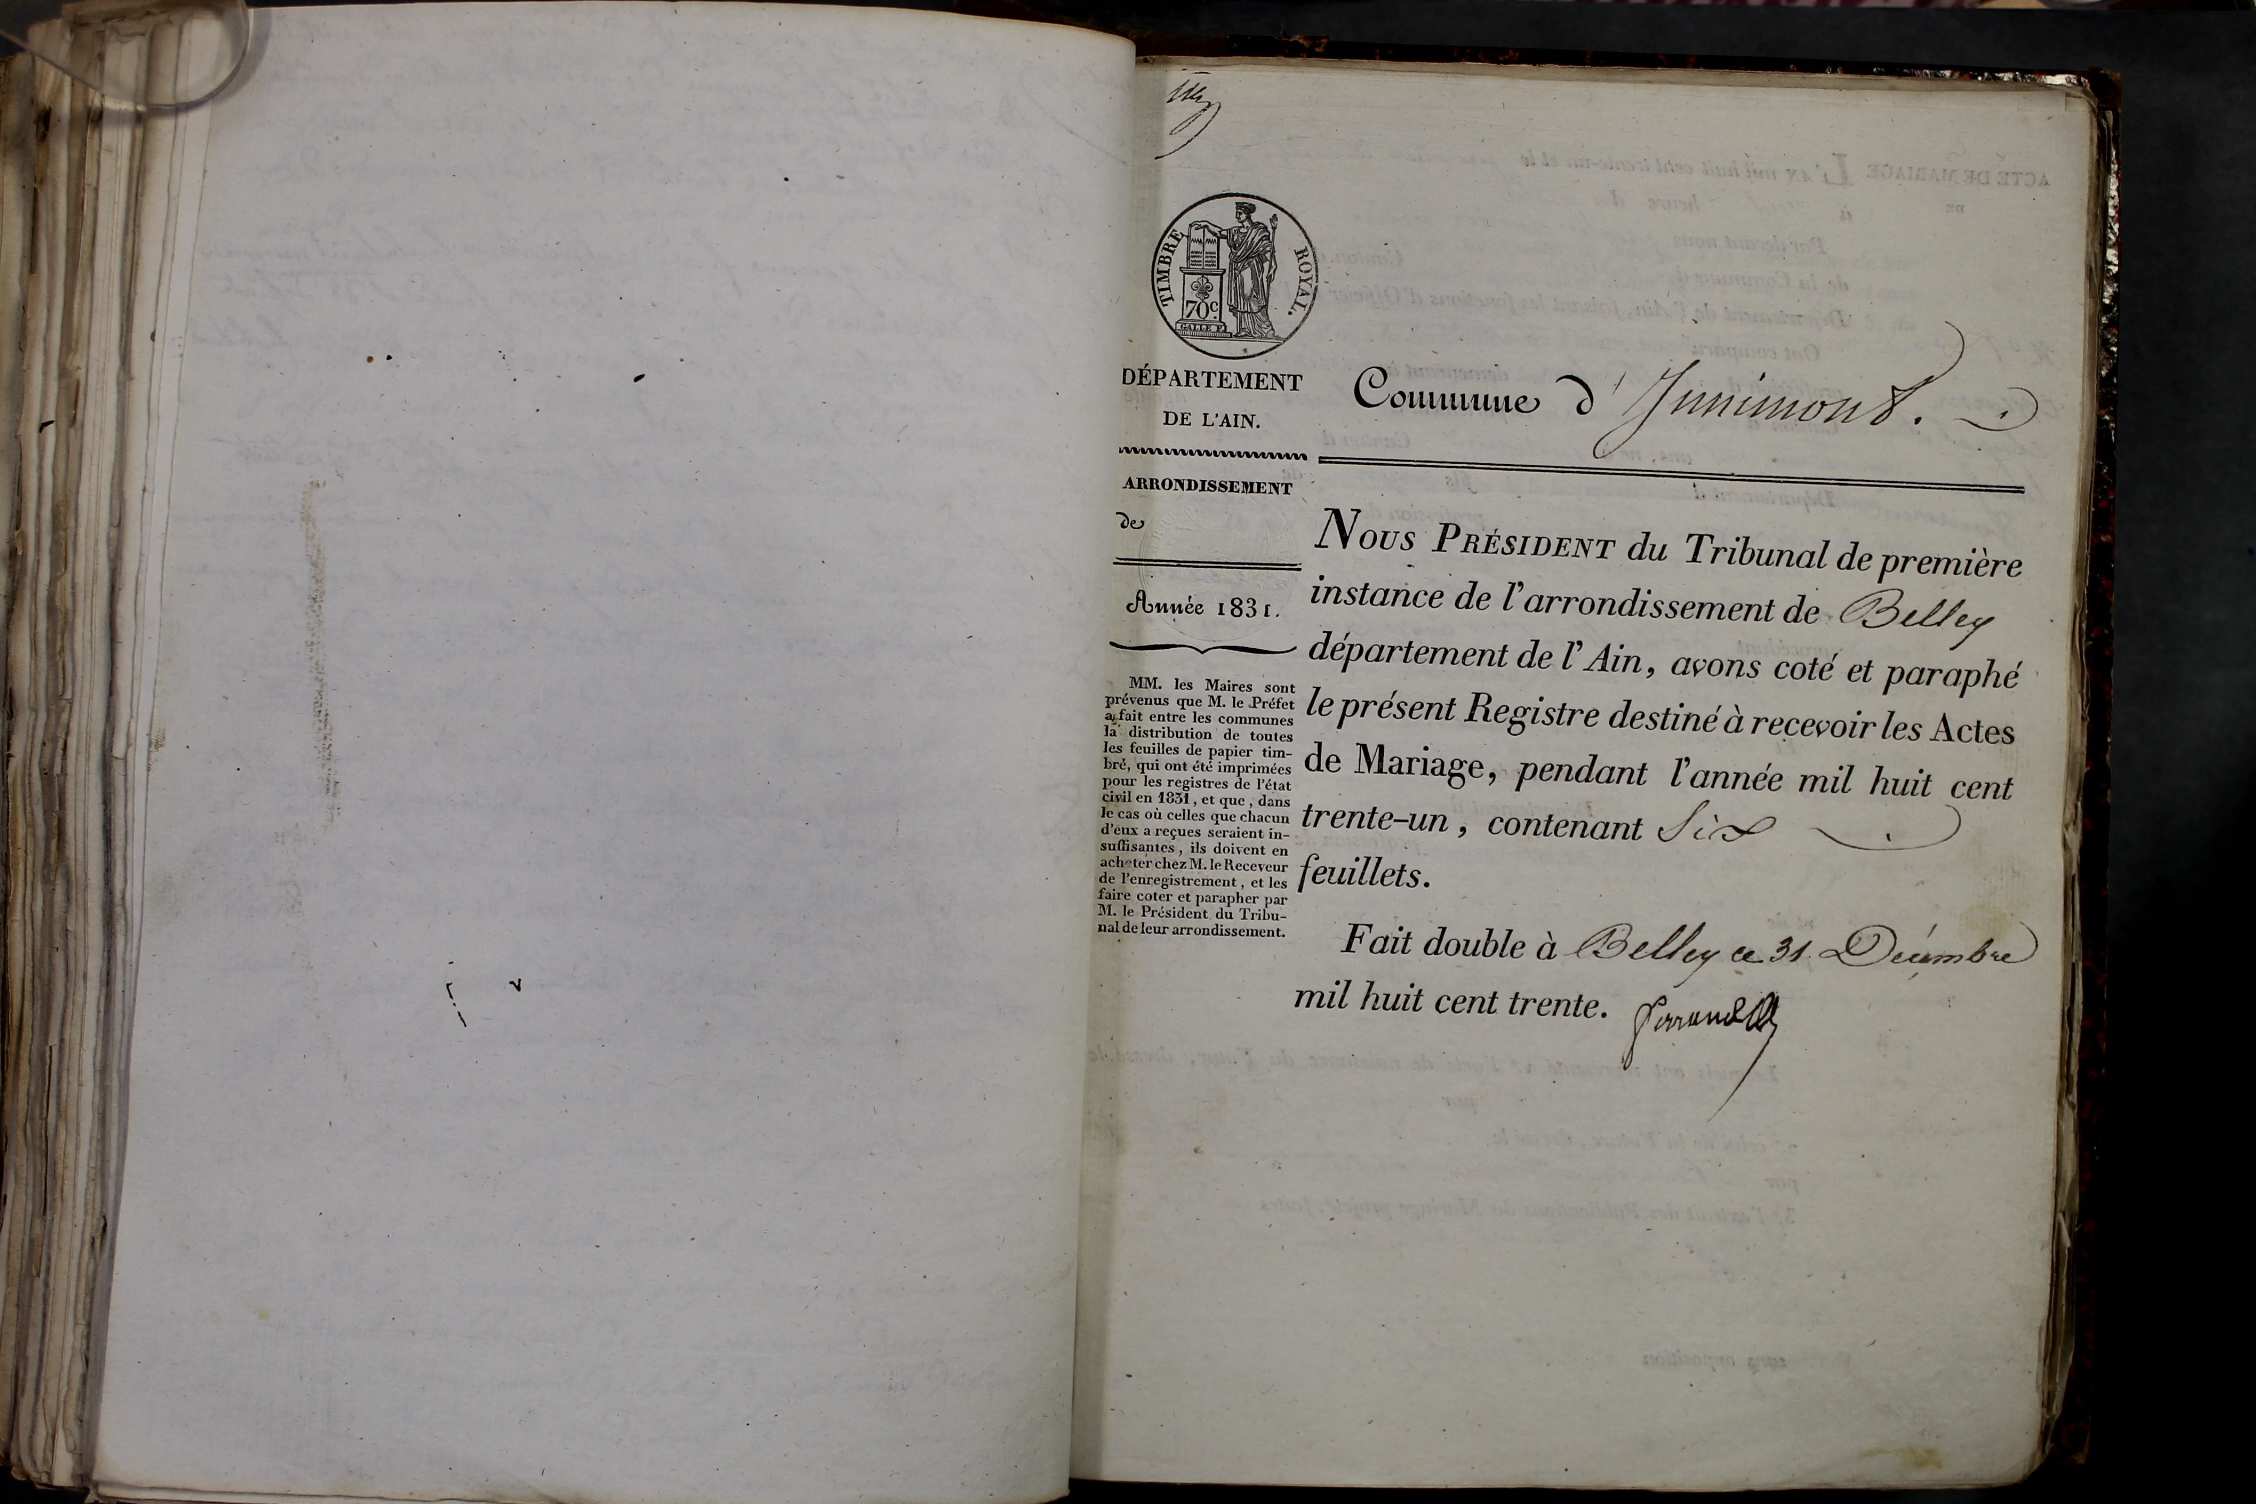 TIMBRE ROYAL.
70 C.
GALLE F.
DÉPARTEMENT
DE L'AIN.
ARRONDISSEMENT
de
Année 1831.
MM. les Maires sont
prévenus que M. le Préfet
a fait entre les communes
la distribution de toutes
les feuilles de papier tim-
bré, qui ont été imprimées
pour les registres de l'état
civil en 1831, et que, dans
le cas où celles que chacun
d'eux a reçues seraient in-
suffisantes, ils doivent en
acheter chez M. le Receveur
de l'enregistrement, et les
faire coter et parapher par
M. le Président du Tribu-
nal de leur arrondissement.
Commune d'Innimont.
NOUS PRÉSIDENT du Tribunal de première
instance de l'arrondissement de Belley
département de l'Ain, avons coté et paraphé
le présent Registre destiné à recevoir les Actes
de Mariage, pendant l'année mil huit cent
trente-un, contenant Six
feuillets.
Fait double à Belley ce 31 Décembre
mil huit cent trente.